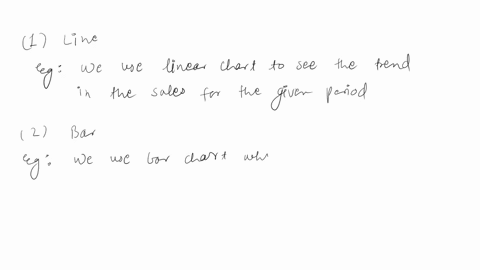 (1) Line
eg: We use linear chart to see the trend
in the sales for the given period
(2) Bar
eg: We use bar chart wh